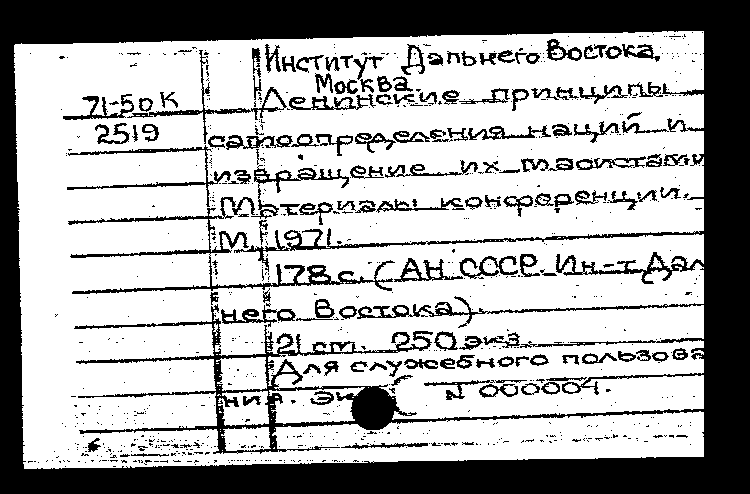 Институт Дальнего Востока.
Москва
71-5дк Ленинские принципы
2519 самоопределения наций и
извращение их маоистами
Материалы конференции.
М., 1971.
178 с. (АН СССР. Ин-т Даль
него Востока).
21 cm. 250 экз.
Для служебного пользова
ния. Эк N 000004.